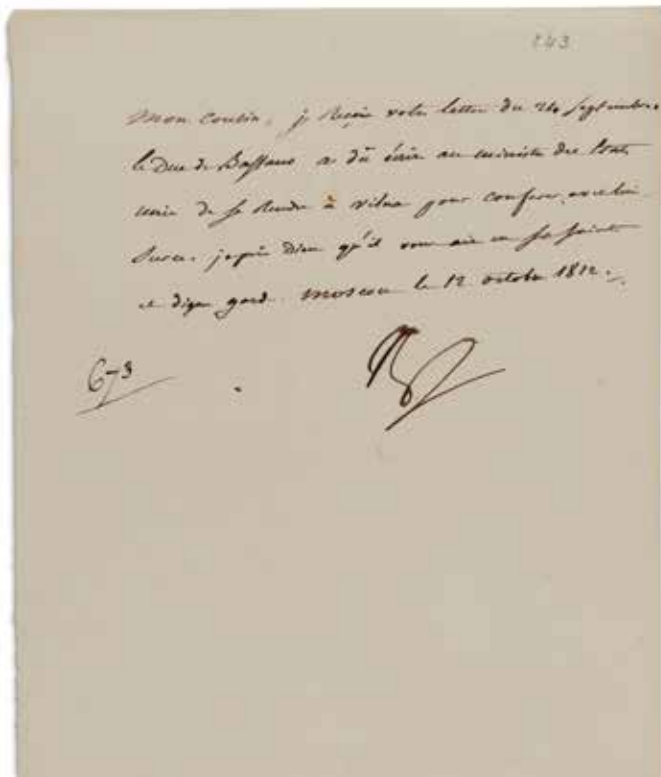 243
Mon Cousin, je reçois votre lettre du 24 septembre.
le Duc de Bassano a dû écrire au ministre des États
unis de se rendre à vilna pour conférer avec lui.
Sur ce, je prie Dieu qu'il vous ait en sa sainte
et digne garde. Moscou le 12 octobre 1812.
673